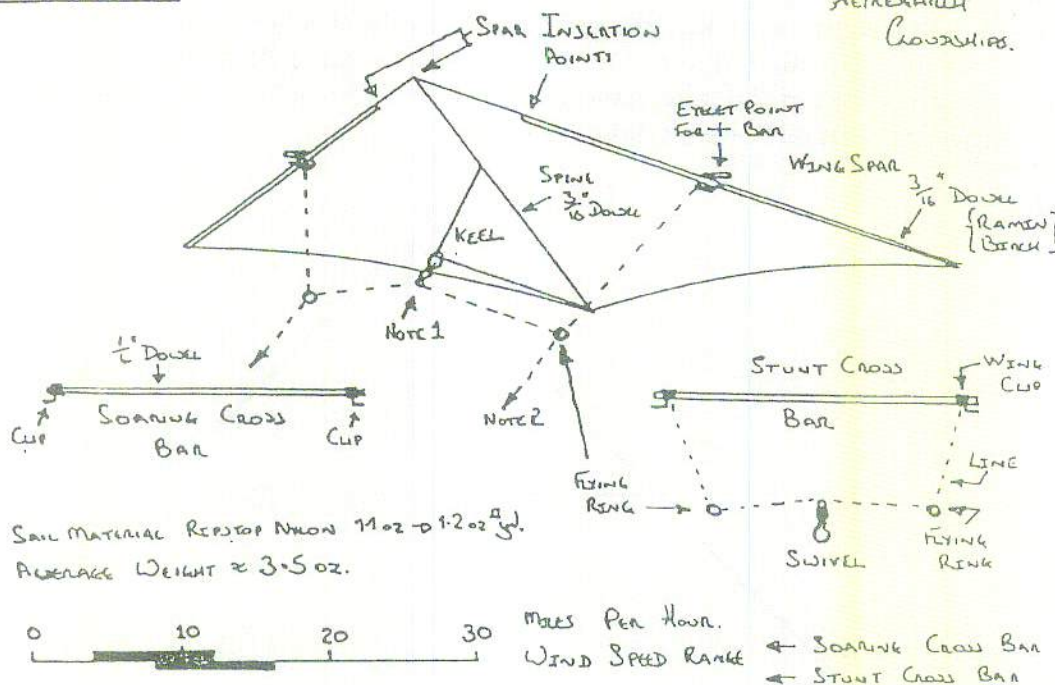 CLOUDSHIPS.
SPAR INSERTION
POINTS
EYELET POINT
FOR + BAR
WING SPAR
3/16" DOWEL
{RAMIN}
{BIRCH}
SPINE
3/16" DOWEL
KEEL
NOTE 1
NOTE 2
1/4" DOWEL
SOARING CROSS
BAR
CLIP
CLIP
STUNT CROSS
BAR
WING
CLIP
LINE
FLYING
RING
SWIVEL
FLYING
RING
SAIL MATERIAL RIPSTOP NYLON
AVERAGE WEIGHT ≈ 3.5 OZ.
0 10 20 30
MILES PER HOUR.
WIND SPEED RANGE
SOARING CROSS BAR
STUNT CROSS BAR